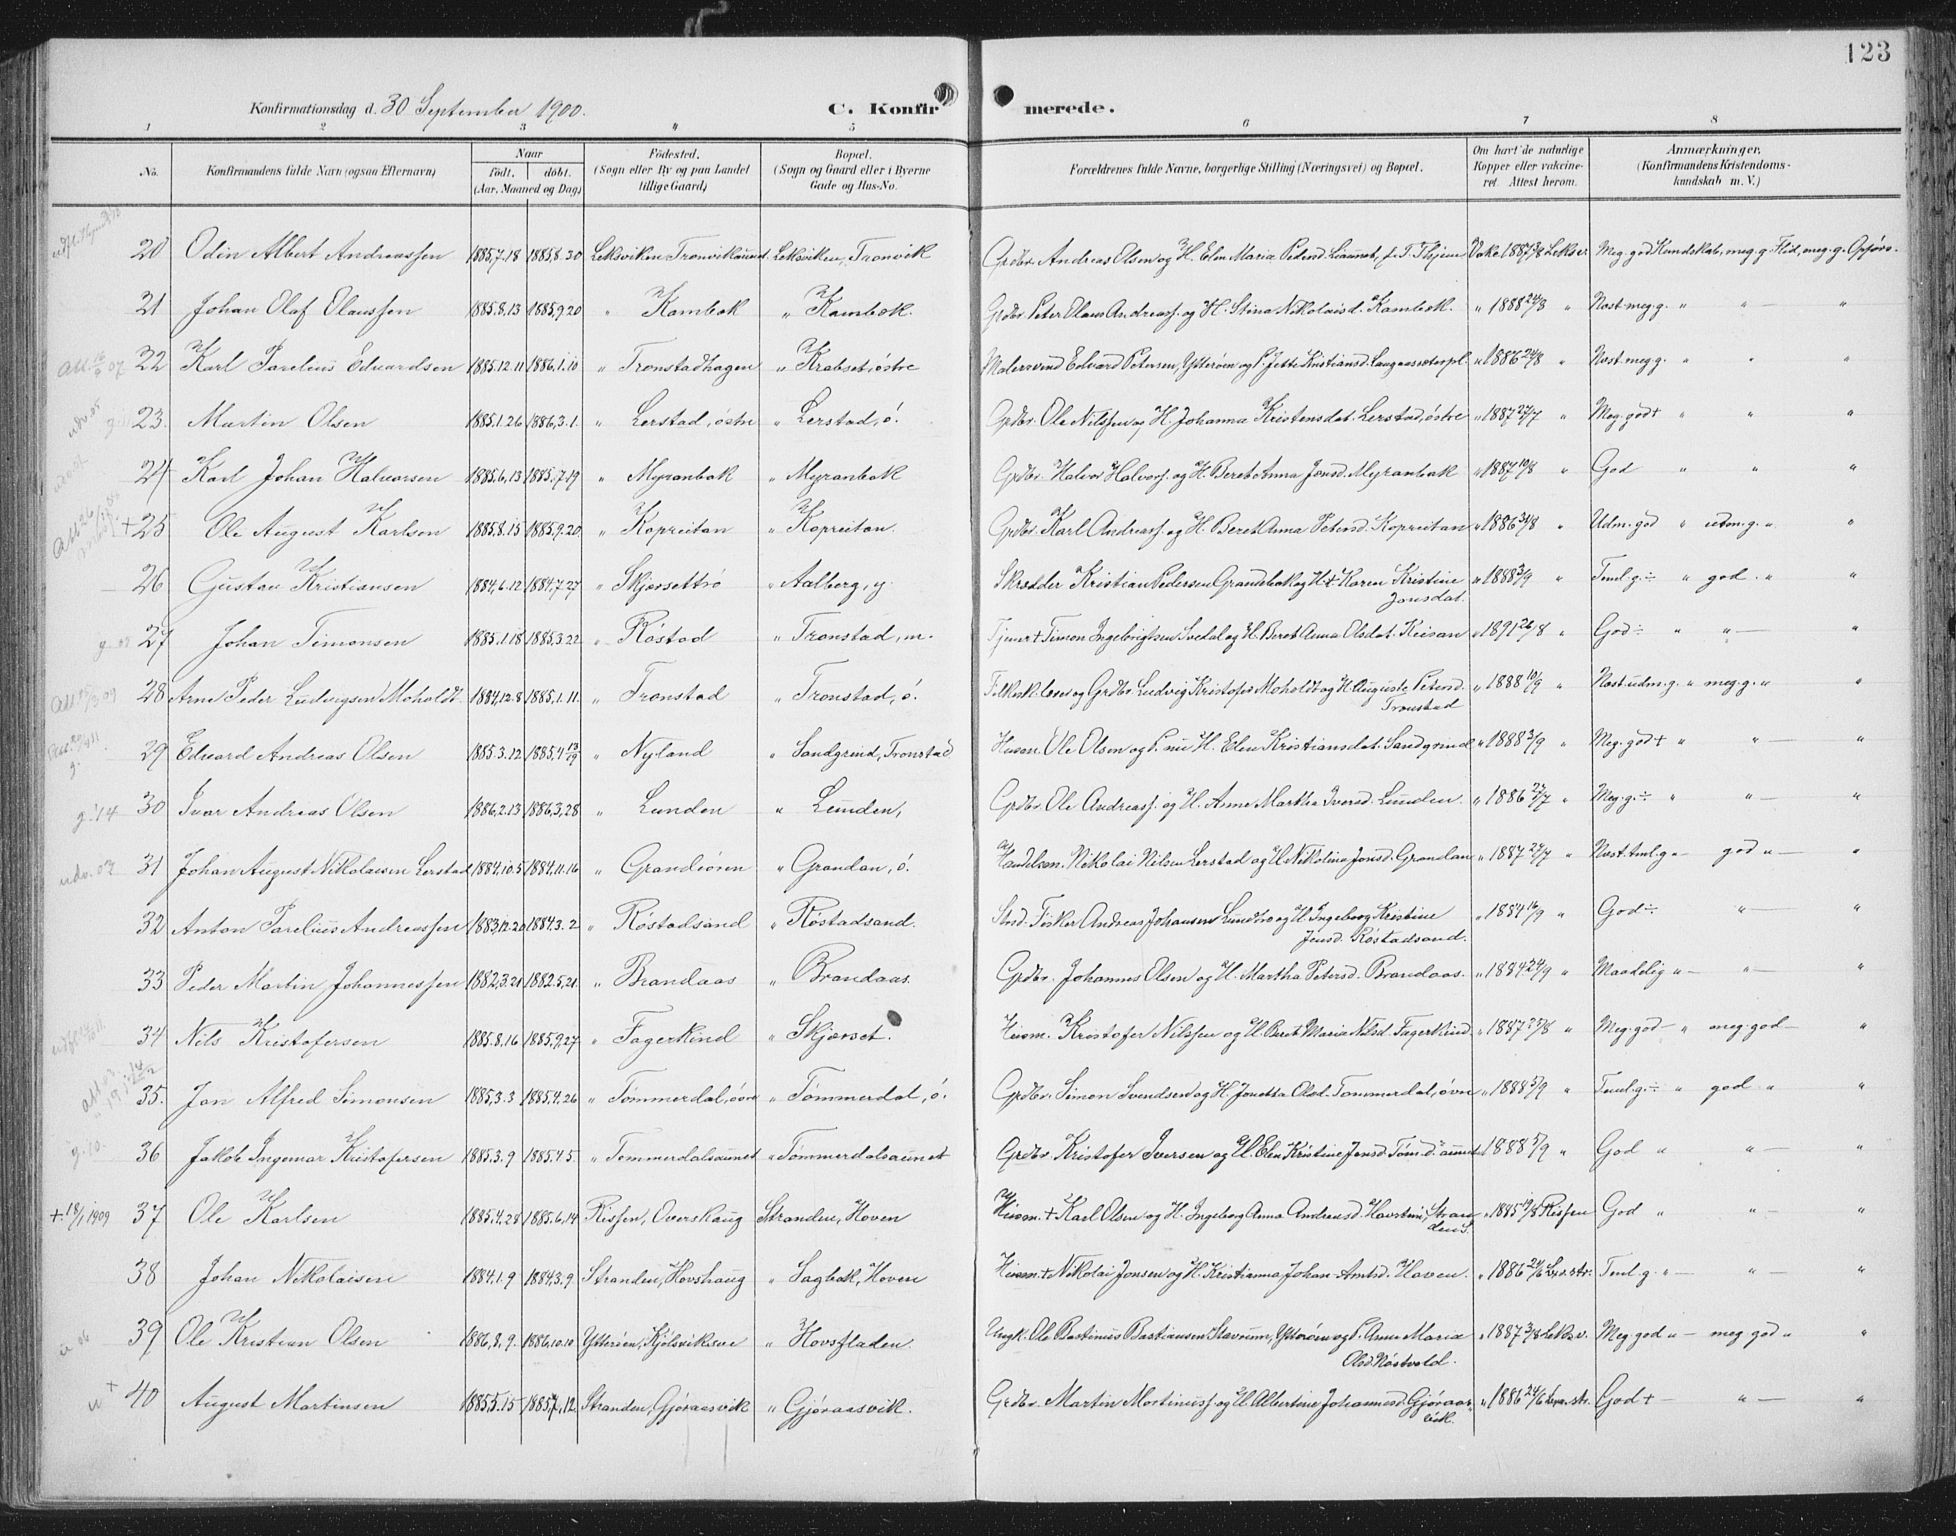 123
Konfirmationsdag d. 30 September 1900. C. Konfirmerede.
1 2 3 " 5 6 7 8
No. Konfirmandens fulde Navn (ogsaa Efternavn) Naar födt. döbt. (Aar, Maaned og Dag) Födested. (Sogn eller By og paa Landet tillige Gaard) Bopæl. (Sogn og Gaard eller i Byerne Gade og Hus-No. Forældrenes fulde Navne, borgerlige Stilling (Næringsvei) og Bopæl. Om havt de naturlige Kopper eller vakcineret. Attest herom. Anmærkninger, (Konfirmandens Kristendomskundskab m. V.)
20 Odin Albert Andreassen 1885,7.18 1885,8.30 Leksviken Tronvikaunet Leksviken, Tronvik Grdbr. Andreas Olsen og H. Elen Maria Pedersd. Vakc. 1887 Leksv. Meg. god Kundskab, meg. g. Flid, meg. g. Opførs.
21 Johan Olaf Olaussen 1885.8.13 1885.9.20 " Kambok " Kambok. Grdbr. Peter Olaus Andreass. og H. Stina Nikolaisd. Kambok. " 1888 24/8 " Næst meg. g. " " — "
Att. 07 22 Karl Parelius Edvardsen 1885.12.11 1886.1.10 " Tronstadhagen " Krabset, østre Malersvend Edvard Petersen, Ytterøen og P. Jette Kristiansd. Langaaseterpl. " 1886 24/8 " Næst meg. g. " " "
udv. 05 23. Martin Olsen 1885.1.26 1886.3.1. " Lerstad, østre " Lerstad, ø. Grdbr. Ole Nilssen og H. Johanna Kristensdat. Lerstad, østre " 1887 27/7 " Meg. god + " " "
24 Karl Johan Halvorsen 1885.6.13 1885.7.19 " Myranbak " Myranbak Grdbr. Halvor Halvors. og H. Beret Anna Jonsd. Myranbak " 1887 10/8 " God " " "
+ 25 Ole August Karlsen 1885.8.15 1885.9.20 " Kopreitan " Kopreitan. Grdbr. Karl Andreass. og H. Beret Anna Petersd. Kopreitan " 1886 31/8 " Udm. god " udm. g. " "
26 Gustav Kristiansen 1884.6.12 1884.7.27 " Skjærsettrø " Aalberg, y. Skrædder Kristian Pedersen Grandebak og H. + Karen Kristine Jonsdat. " 1888 3/9 " Teml. g. ÷ " god. " "
27 Johan Timonsen 1885.1.18 1885.3.22 " Røstad " Tronstad, m. Tjener + Timon Ingebrigtsen Svedal og H. Beret Anna Olsdat. Keisan " 1891 26/8 " God ÷ " " — "
28 Arne Peder Ludvigsen Moholdt. 1884.12.8 1885.1.11. " Tronstad " Tronstad, ø. Folkesk. lærer og Grdbr. Ludvig Kristofer Moholdt og H. Auguste Petersd. Tronstad " 1888 10/9 " Næst udm. g. " meg. g. " "
29 Edvard Andreas Olsen 1885.3.12 1885.4 " Nyland " Sandgrind, Tronstad Husm. Ole Olsen og P. nu H. Elen Kristiansdat. Sandgrind " 1888 3/9 " Meg. god + " " — "
g. '14 30 Ivar Andreas Olsen 1886.2.13 1886.3.28 " Lunden " Lunden, Grdbr. Ole Andreass. og H. Anne Martha Iversd. Lunden. " 1886 27/7 " Meg. g. ÷ " " — "
udv. 03 31 Johan August Nikolaisen Lerstad 1884.10.5 1884.11.16 " Grandøren " Grandan, ø. Handelsm. Nikolai Nilsen Lerstad og H. Nikolina Jonsd. Grandan " 1887 27/7 " Næst teml. g. " — god " — "
32 Anton Parelius Andreassen 1883.12.20 1884.3.2 " Røstadsand " Røstadsand. Strd. Fisker Andreas Johansen Lundbro og H. Ingeborg Kristine Jensd. Røstadsand. " 1884 16/9 " God ÷ " — "
33 Peder Martin Johannessen 1882.3.21 1882.5.21. " Brandaas " Brandaas. Grdbr. Johannes Olsen og H. Martha Petersd. Brandaas. " 1884 24/9 " Maadelig " — " — "
34 Nils Kristofersen 1885.8.16 1885.9.27 " Fagerkind " Skjærset. Husm. Kristofer Nilssen og H. Beret Maria Nilsd. Fagerkind " 1887 /8 " Meg. god — " meg. god — "
35. Jon Alfred Simonsen 1885.3.3 1885.4.26 " Tømmerdal, øvre " Tømmerdal, ø. Grdbr. Simon Svendsen og H. Jonetta Olsd. Tømmerdal, øvre " 1888 5/9 " Teml. g. ÷ " god " "
g. 10. 36 Jakob Ingemar Kristofersen 1885.3.9 1885.4.5. " Tømmerdalsaunet " Tømmerdalsaunet Grdbr. Kristofer Iversen og H. Elen Kristine Jensd. Tøm.d. aunet " 1888 5/9 " God " " — "
+ 18/1 1909 37 Ole Karlsen 1885.4.28 1885.6.14 Rissen, Overskaug Stranden, Hoven Husm. + Karl Olsen og H. Ingeborg Anna Andreasd. Havstein, Stranden S. " 1885 19/8 Rissen God " " — "
38 Johan Nikolaisen 1884.1.9 1884.3.9 Stranden, Hovshaug " Sagbak, Hoven Husm. + Nikolai Jonsen og H. Kristianna Johan-Antsd. Hoven. " 1886 24/6 Lexv. str. Teml. g. " — " — "
u 06 39 Ole Kristian Olsen 1886.8.9. 1886.10.10 Ytterøen, Kjølsviksve " Hovsfladen. Ungk. Ole Bastinus Bastiansen Stavrum, Ytterøen og P. Anne Maria Olsd. Nøstvold. " 1887 3/8 Leksv. Meg. god " — meg god " "
u + 40 August Martinsen 1885.5.15 1885.7.12. Stranden, Gjøraasvik " Gjøraasvik. Grdbr. Martin Martinuss. og H. Albertine Johannesd. Gjøraasvik. " 1886 24/6 Lexv. str. God + — " — "